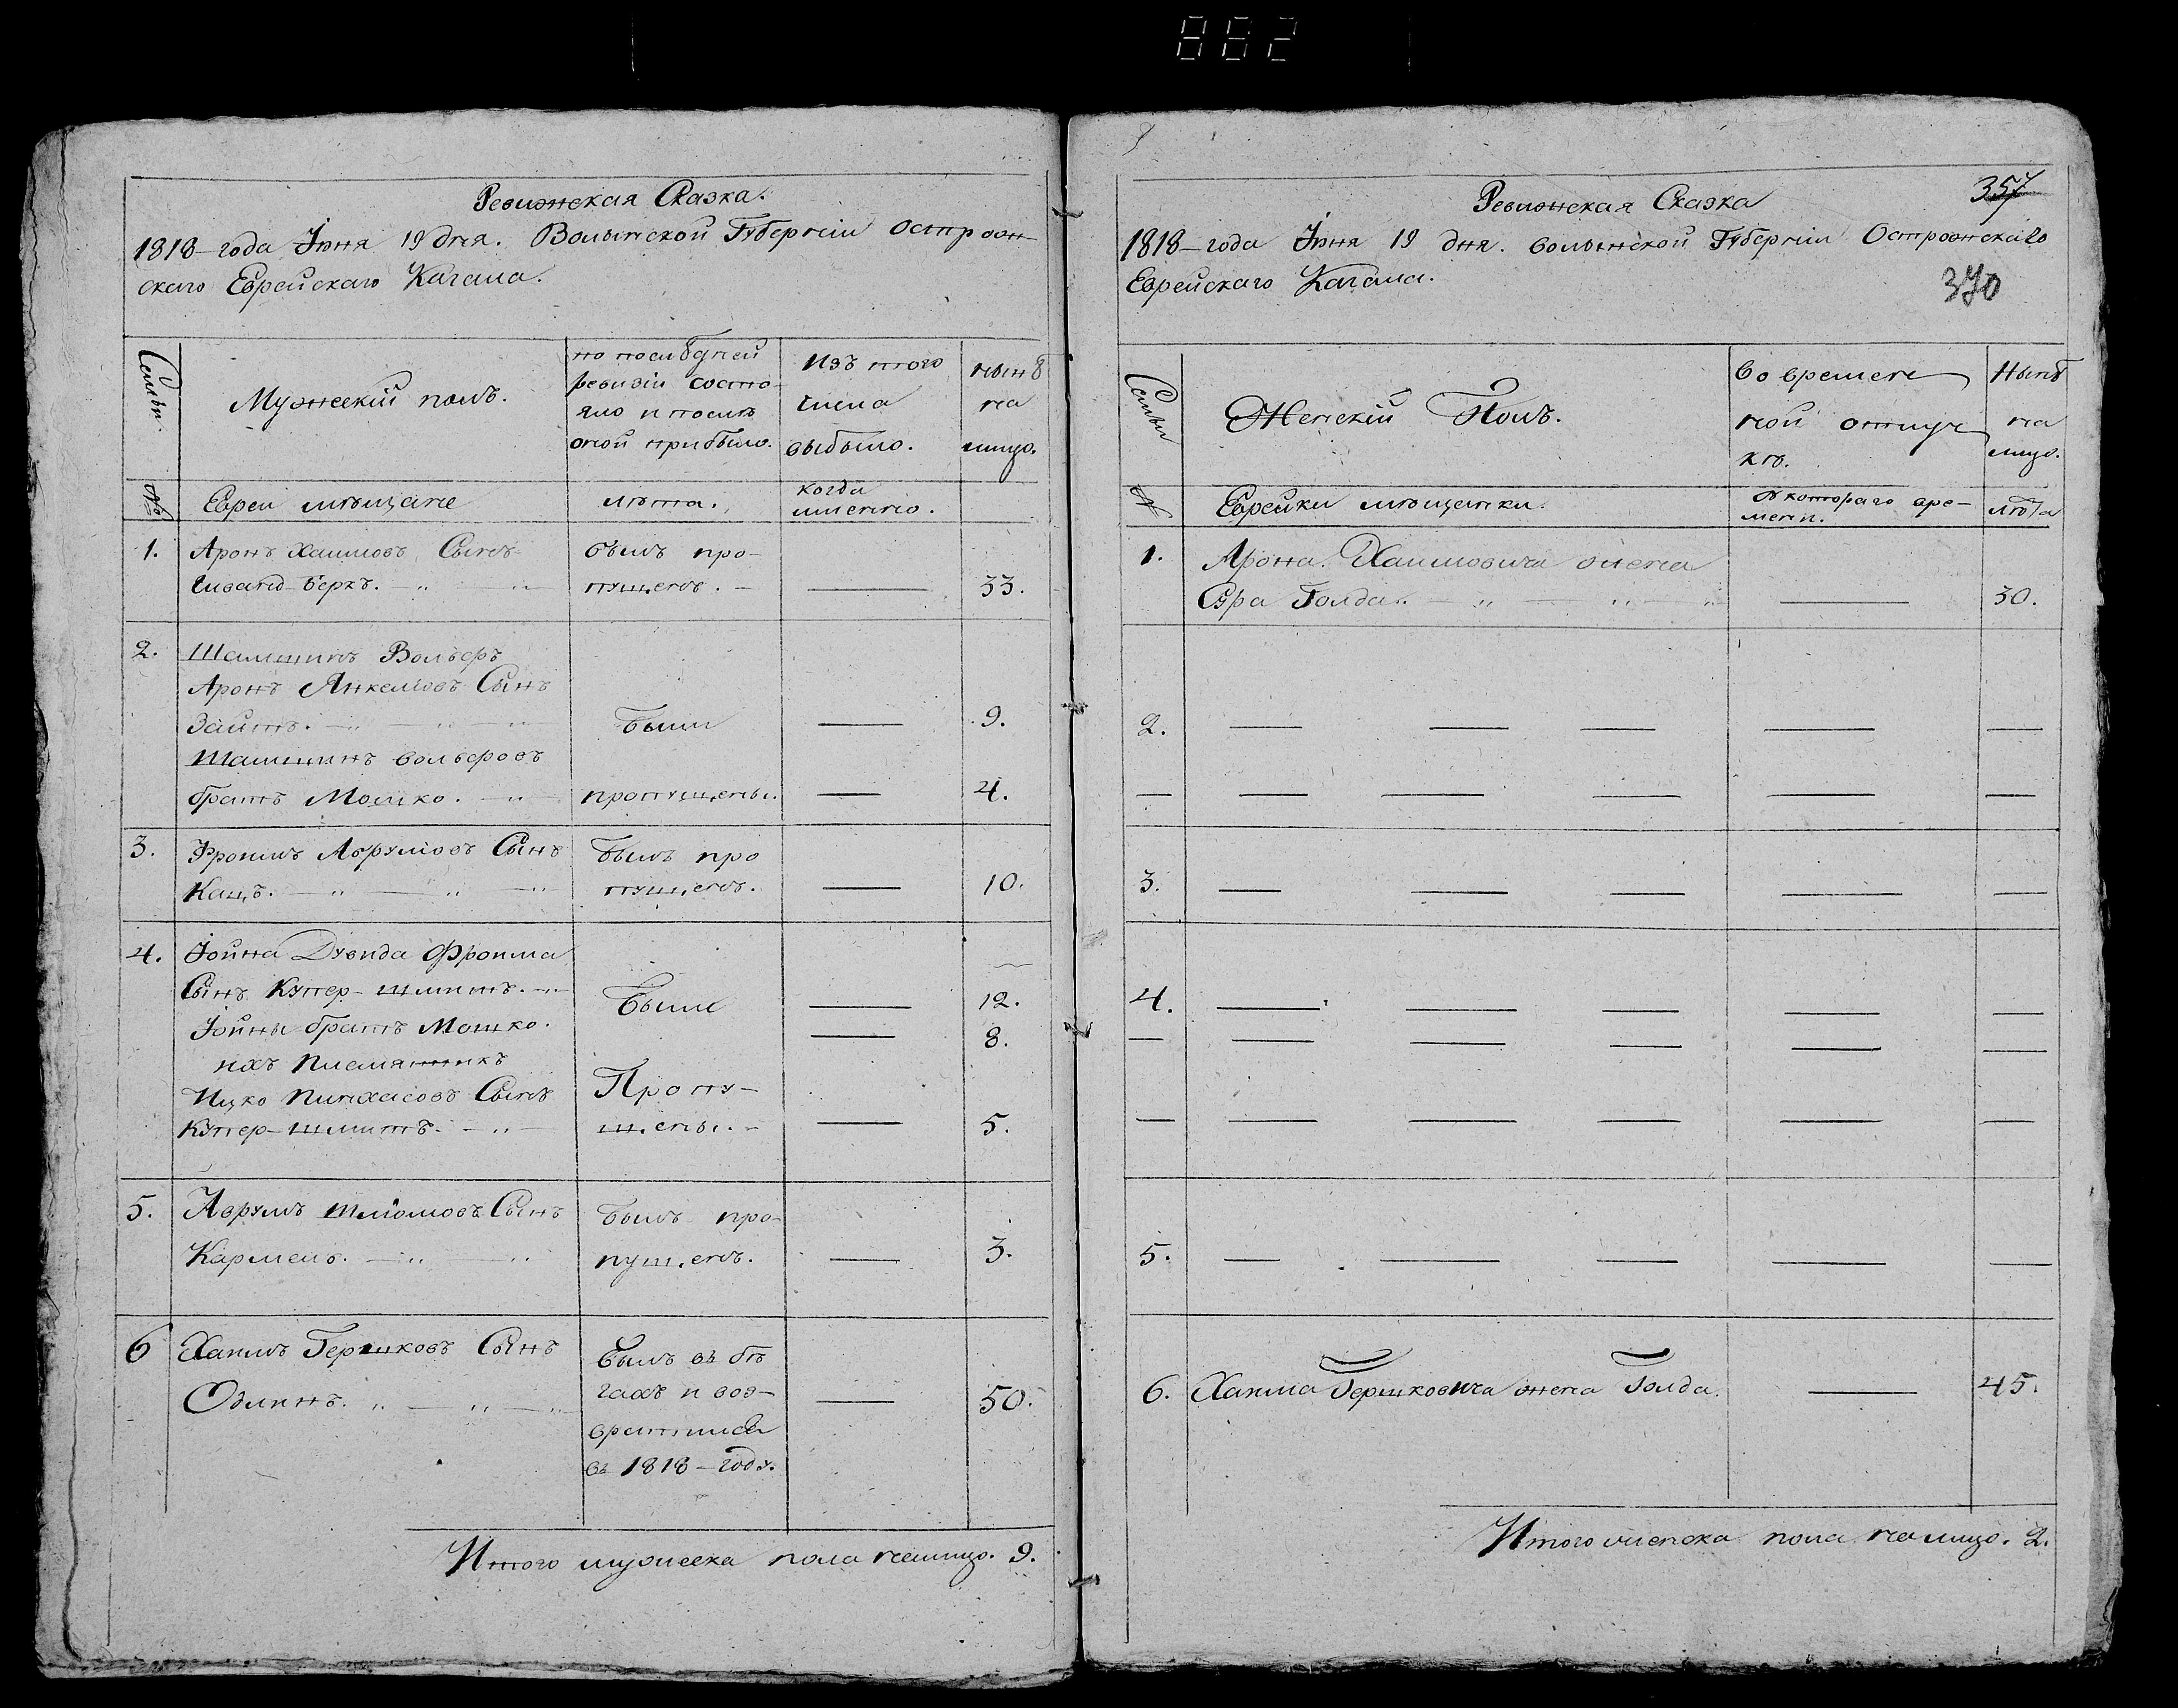 882
Ревижская Сказка.
1818 – года Іюня 19 дня. Волынской Губерніи Острож-
скаго Еврейскаго Кагала.
Семьи.
Мужескій полъ.
по послѣдней
ревизіи состо-
яло и послѣ
оной прибыло.
Изъ того
числа
выбыло.
нынѣ
на
лицо.
№
Евреи мѣщане
лѣта.
когда
именно.
1. Аронъ Хаимовъ Сынъ былъ про-
пущенъ. — 33.
2. Шалшинъ Вольверъ
Аронъ Анкелiовъ Сынъ
Зайтъ. были — 9.
Шалшинъ вольверовъ
братъ Мошко. пропущены. — 4.
3. Фроимъ Аврумовъ Сынъ былъ про
Кацъ. пущенъ. — 10.
4. Іойна Дувида Фроима
Сынъ Купер-шмитъ. были — 12.
Іойны братъ Мошко. — 8.
ихъ племянникъ
Ицко Пинхасовъ Сынъ Пропу-
Купер-шмитъ. щены. — 5.
5. Аврумъ Шліомовъ Сынъ былъ про-
Кармель. пущенъ. — 3.
6 Хаимъ Гершковъ Сынъ былъ въ бѣ
гахъ и воз-
вратился
въ 1818 – году.
— 50.
Итого мужеска пола налицо. 9.
357
Ревижская Сказка
1818 – года Іюня 19 дня. волынской Губерніи Острожскаго
Еврейскаго Кагала.
370
Семьи
Женскій Полъ.
Во времен
ной отлуч
кѣ.
Нынѣ
на
лицо.
№
Еврейки мѣщанки.
Съ котораго вре-
мени.
лѣта
1. Арона Хаимовича жена
Сура Голда. — 30.
2. — — — — —
— — — — — —
3. — — — — —
4. — — — — —
— — — — — —
— — — — — —
5. — — — — —
6. Хаима Гершковича жена Голда. — 45.
Итого женска пола налицо. 2.